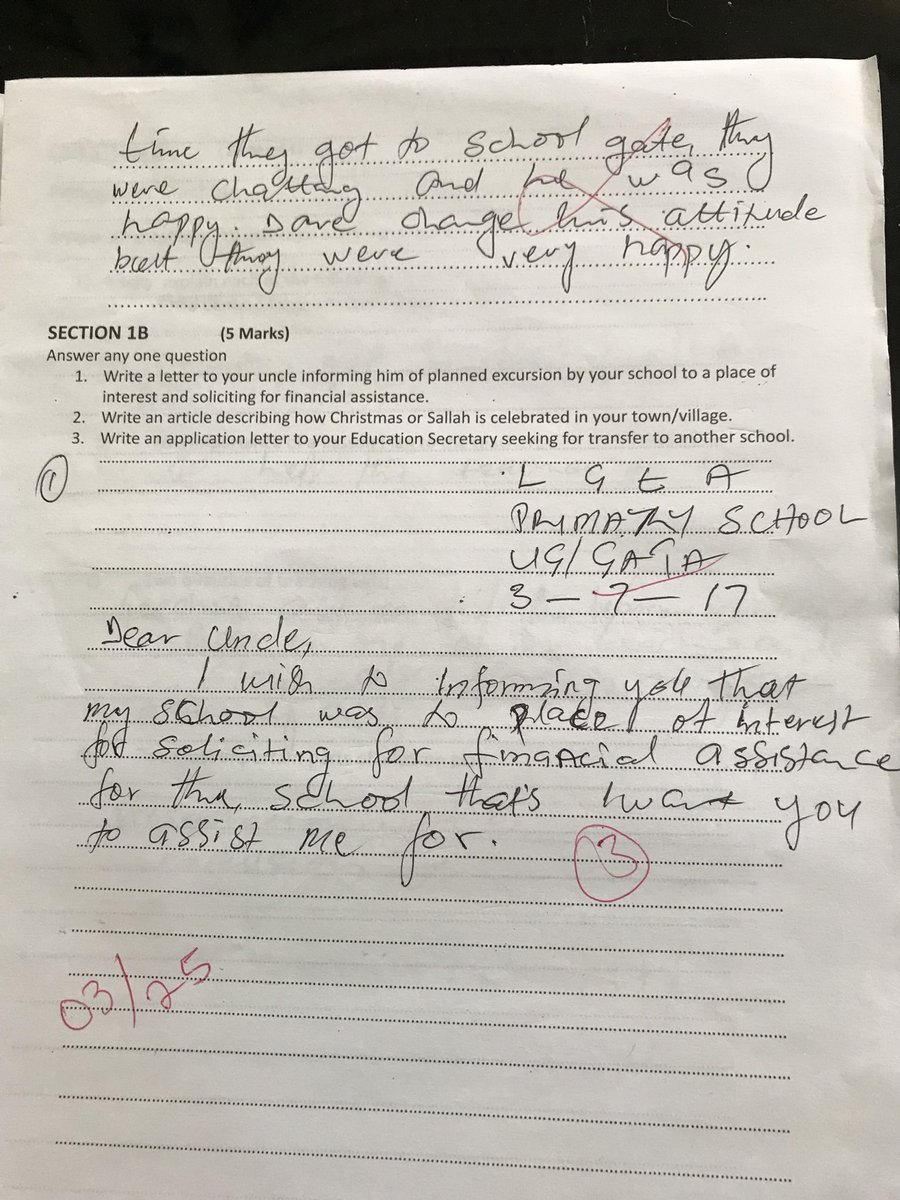 time they got to school gate, they
were chatting and he was
happy. Dave change his attitude
but they were very happy.
SECTION 1B (5 Marks)
Answer any one question
1. Write a letter to your uncle informing him of planned excursion by your school to a place of
interest and soliciting for financial assistance.
2. Write an article describing how Christmas or Sallah is celebrated in your town/village.
3. Write an application letter to your Education Secretary seeking for transfer to another school.
1
L G E A
PRIMARY SCHOOL
UG/ GATA
3 - 7 - 17
Dear Uncle,
I wish to informing you that
my school was to place of interest
for soliciting for financial assistance
for the school that's I want you
to assist me for.
3
03/25